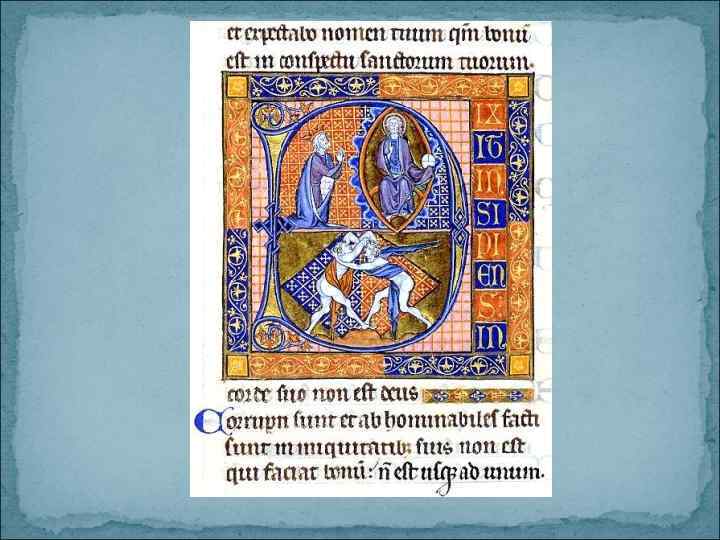 et expectabo nomen tuum qm̄ bonū
est in conspectu sanctorum tuorum.
D
IX
IT̄
IN
SI
PI
EN
S·
IN
corde suo non est deus
Corrupti sunt et ab hominabiles facti
sunt in iniquitatib; suis non est
qui faciat bonū: n̄ est usq; ad unum.